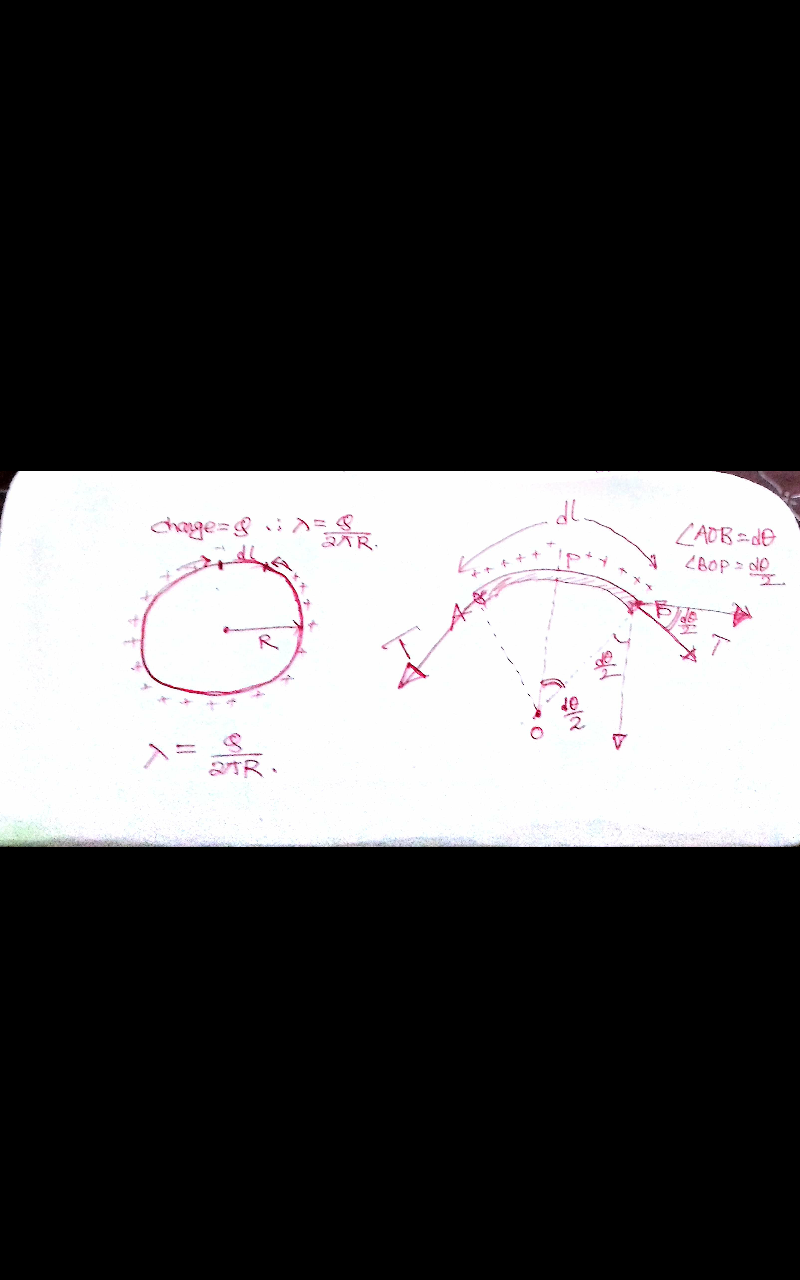 charge = Q ∴ λ = Q/2πR.
dl
R
λ = Q/2πR.
dl
∠AOB = dθ
∠BOP = dθ/2
P
A
B
dθ/2
T
T
dθ/2
dθ/2
O